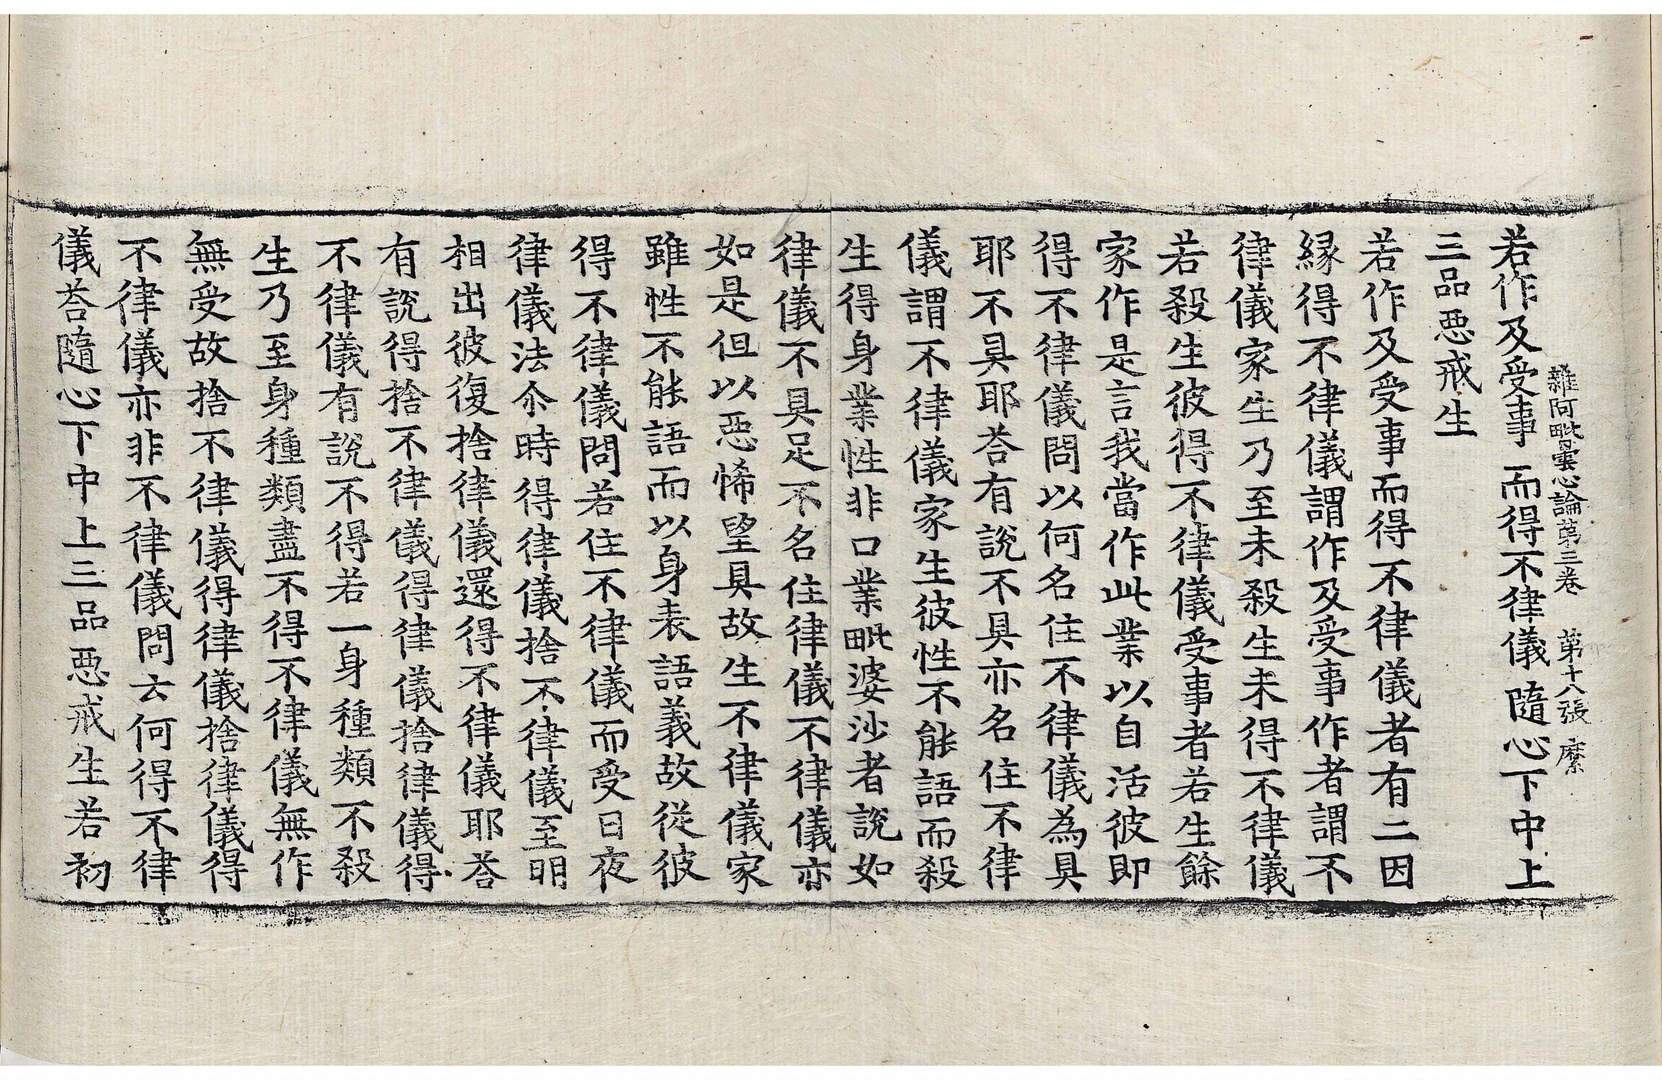 雜阿毗曇心論第三卷　第十八張　縻
若作及受事　而得不律儀　隨心下中上
三品惡戒生
若作及受事而得不律儀者有二因
緣得不律儀謂作及受事作者謂不
律儀家生乃至未殺生未得不律儀
若殺生彼得不律儀受事者若生餘
家作是言我當作此業以自活彼即
得不律儀問以何名住不律儀為具
耶不具耶荅有說不具亦名住不律
儀謂不律儀家生彼性不能語而殺
生得身業性非口業毗婆沙者說如
律儀不具足不名住律儀不律儀亦
如是但以惡悕望具故生不律儀家
雖性不能語而以身表語義故從彼
得不律儀問若住不律儀而受日夜
律儀法尒時得律儀捨不律儀至明
相出彼復捨律儀還得不律儀耶荅
有說得捨不律儀得律儀捨律儀得
不律儀有說不得若一身種類不殺
生乃至身種類盡不得不律儀無作
無受故捨不律儀得律儀捨律儀得
不律儀亦非不律儀問云何得不律
儀荅隨心下中上三品惡戒生若初